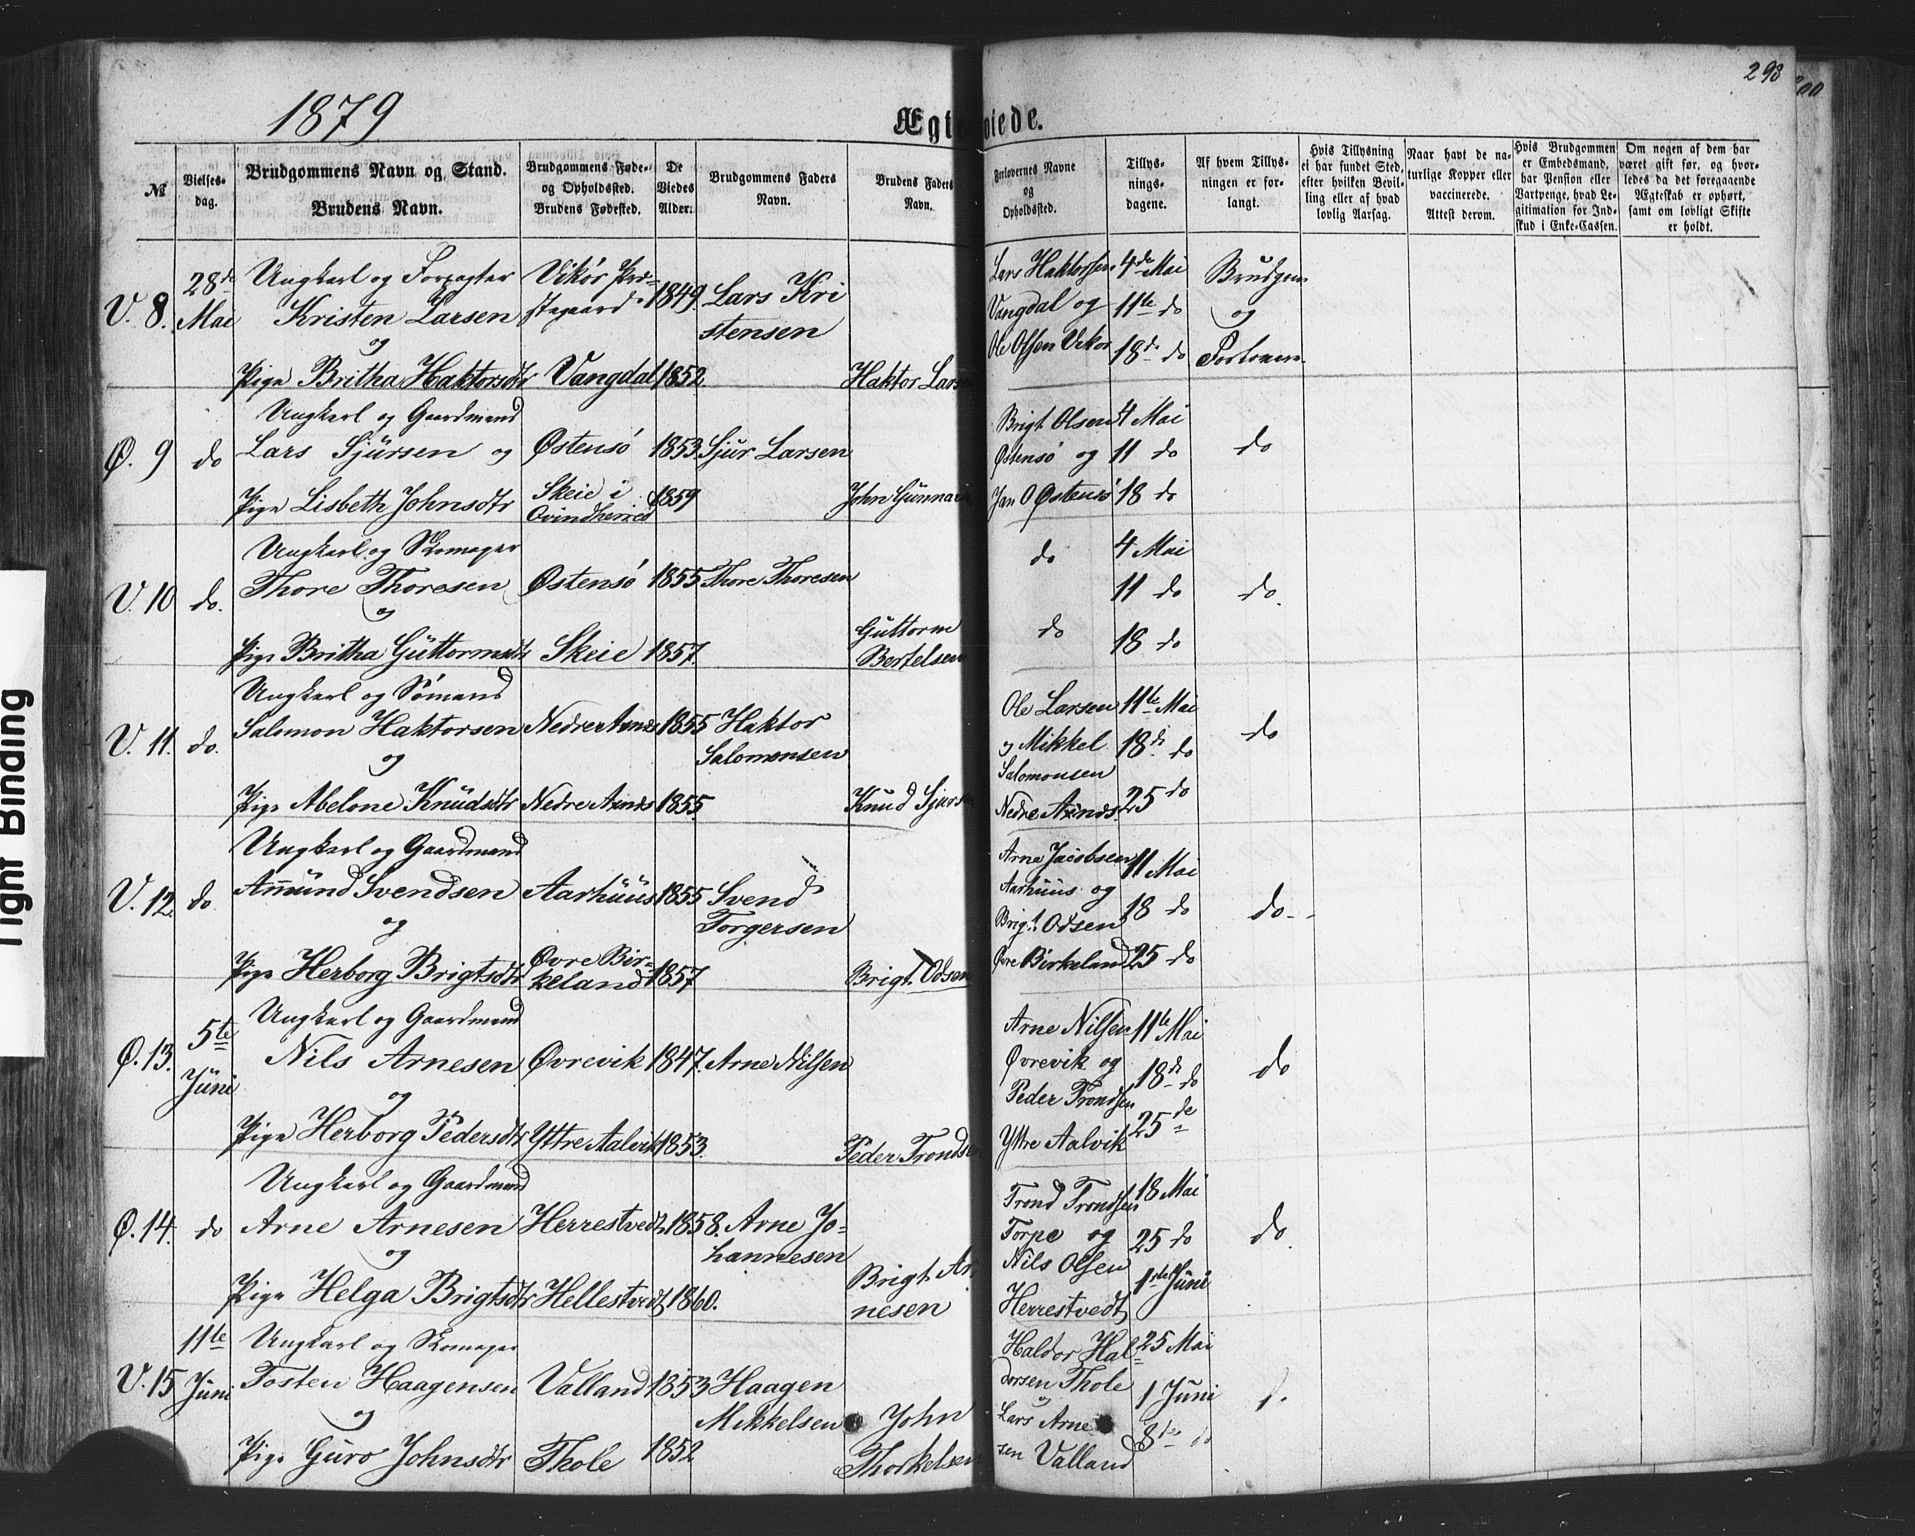 298
300
1879
Ægteviede.
№
Vielses-dag.
Brudgommens Navn og Stand.
Brudens Navn.
Brudgommens Føde- og Opholdssted.
Brudens Fødested.
De Viedes Alder.
Brudgommens Faders Navn.
Brudens Faders Navn.
Forlovernes Navne og Opholdssted.
Tillys-nings-dagene.
Af hvem Tillys-ningen er for-langt.
Hvis Tillysning ei har fundet Sted, efter hvilken Bevil-ling eller af hvad lovlig Aarsag.
Naar havt de na-turlige Kopper eller vaccinerede. Attest derom.
Hvis Brudgommen er Embedsmand, har Pension eller Vartpenge, hvad Le-gitimation for Ind-skud i Enke-Cassen.
Om nogen af dem har været gift før, og hvor-ledes da det foregaaende Ægteskab er ophørt, samt om lovligt Skifte er holdt.
V. 8. 28de Mai
Ungkarl og Forpagter
Kristen Larsen
og
Pige Britha Haktorsdtr
Vikør Præ-stegaard
Vangdal
1849
1852
Lars Kri
stensen
Haktor Lars
Lars Haktorsen
Vangdal og
Ole Olsen Vikør
4de Mai
11te do
18de do
Brudgom
og
Forlovere
Ø. 9 do
Ungkarl og Gaardmand
Lars Sjursen og
Pige Lisbeth Johnsdtr
Østensö
Skeie i
Qvindherred
1853
1859
Sjur Larsen
John Gunnar
Brigt Olsen
Østensö og
Jan O Østensö
4 Mai
11 do
18 do
do
V. 10 do.
Ungkarl og Skomager
Thore Thoresen
og
Pige Britha Guttormsdtr
Østensö
Skeie
1855
1857
Thore Thoresen
Guttorm
Bertelsen
do
do
4 Mai
11 do
18 do
do.
V. 11. do.
Ungkarl og Sömand
Salomon Haktorsen
og
Pige Abelone Knudsdtr
Nedre Axnæs
Nedre Axnæs
1855
1855
Haktor
Salomonsen
Knud Sjurs
Ole Larsen
og Mikkel
Salomonsen
Nedre Axnæs
11te Mai
18de do
25 do
do
V. 12 do
Ungkarl og Gaardmand
Amund Svendsen
og
Pige Herborg Brigtsdtr
Aarhuus
Øvre Bir-
keland
1855
1857
Svend
Torgersen
Brigt Odsen
Arne Jacobsen
Aarhuus og
Brigt Odsen
Øvre Birkeland
11 Mai
18 do
25 do
do
Ø. 13. 5te Juni
Ungkarl og Gaardmand
Nils Arnesen
og
Pige Herborg Pedersdtr
Øvrevik
Yttre Aalvik
1847.
1853.
Arne Nilsen
Peder Trondse
Arne Nilsen
Øvrevik og
Peder Trondsen
Yttre Aalvik
11te Mai
18de do
25de
do
Ø. 14. do
Ungkarl og Gaardmand
Arne Arnesen
og
Pige Helga Brigtsdtr
Herrestvedt
Hellestvedt
1858.
1860.
Arne Jo-
hannesen
Brigt Ar
nesen
Trond Trondsen
Torpe og
Nils Olsen
Herrestvedt
18 Mai
25 do
1ste Juni
do.
V. 15 11te Juni
Ungkarl og Skomager
Tosten Haagensen
og
Pige Guro Johnsdtr
Valland
Thole
1853
1852
Haagen
Mikkelsen
John
Thorkelsen
Haldor Hal-
dorsen Thole
og
Lars Arne
sen Valland
25 Mai
1 Juni
8de do
Tight Binding